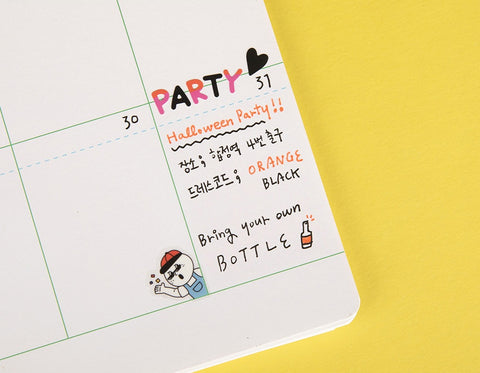 PARTY
30
31
Halloween Party!!
장소; 합정역 4번 출구
드레스코드; ORANGE
BLACK
Bring your own
BOTTLE